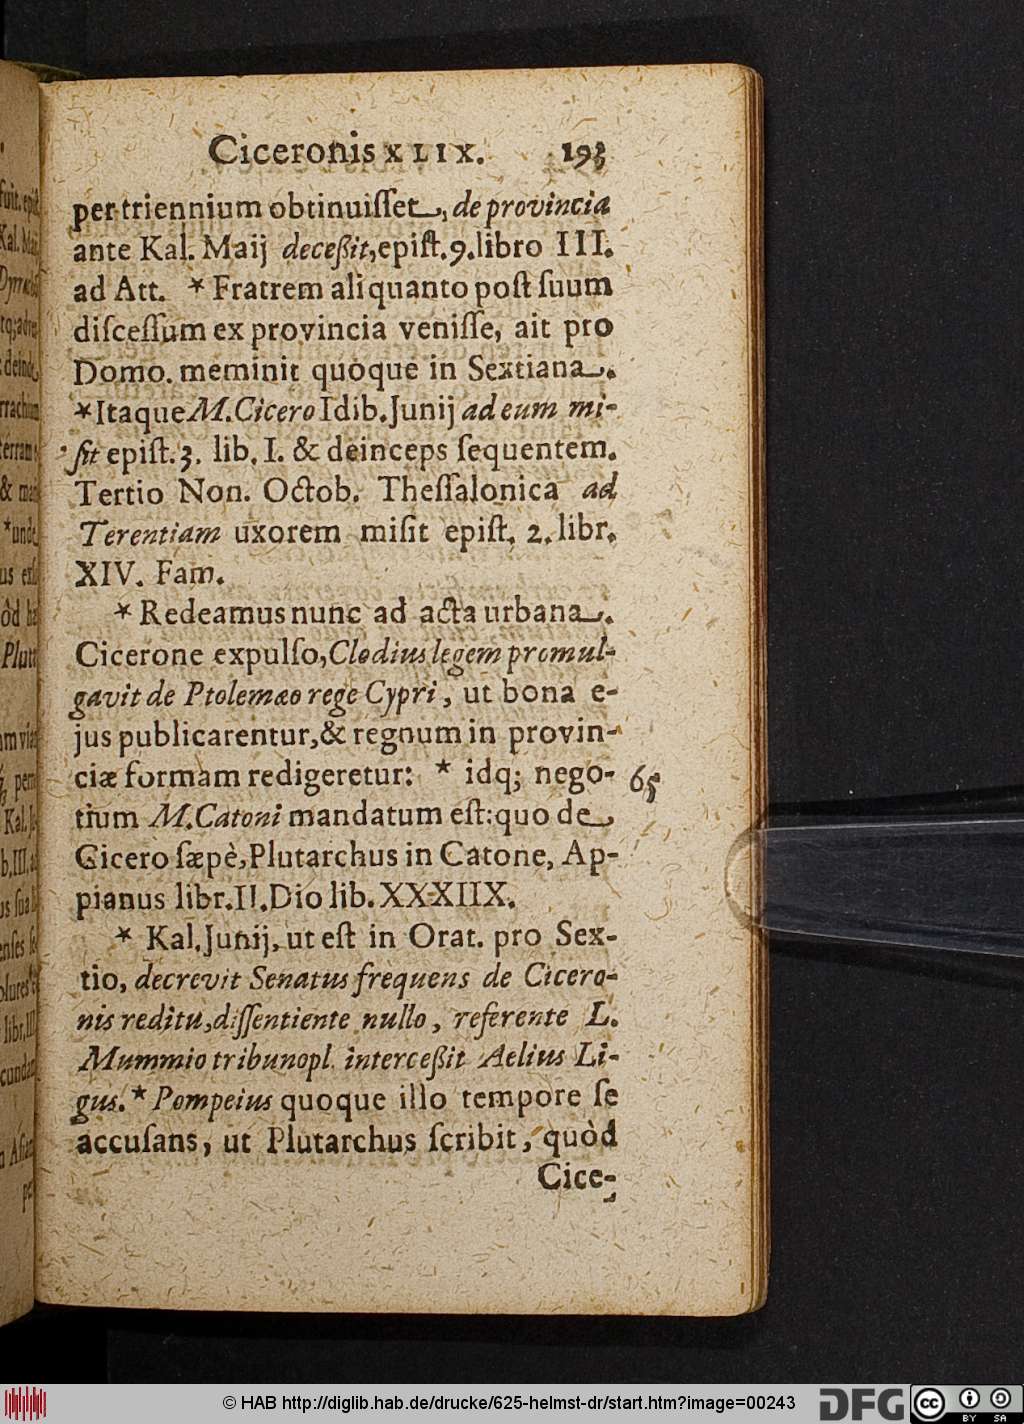 Ciceronis XLIX. 193
per triennium obtinuiſſet, de provincia
ante Kal. Maij deceßit, epiſt. 9. libro III.
ad Att. * Fratrem aliquanto poſt ſuum
diſceſſum ex provincia veniſſe, ait pro
Domo. meminit quoque in Sextiana.
*Itaque M. Cicero Idib. Junij ad eum mi-
ſit epiſt. 3. lib. I. & deinceps ſequentem.
Tertio Non. Octob. Theſſalonica ad
Terentiam uxorem miſit epiſt. 2. libr.
XIV. Fam.
* Redeamus nunc ad acta urbana.
Cicerone expulſo, Clodius legem promul-
gavit de Ptolemæo rege Cypri, ut bona e-
jus publicarentur, & regnum in provin-
ciæ formam redigeretur: * idq; nego-
65
tium M. Catoni mandatum eſt: quo de
Cicero ſæpè, Plutarchus in Catone, Ap-
pianus libr. II. Dio lib. XXXIIX.
* Kal. Junij, ut eſt in Orat. pro Sex-
tio, decrevit Senatus frequens de Cicero-
nis reditu, diſſentiente nullo, referente L.
Mummio tribuno pl. interceßit Aelius Li-
gus. * Pompeius quoque illo tempore ſe
accuſans, ut Plutarchus ſcribit, quòd
Cice-
© HAB http://diglib.hab.de/drucke/625-helmst-dr/start.htm?image=00243
DFG
cc
BY SA